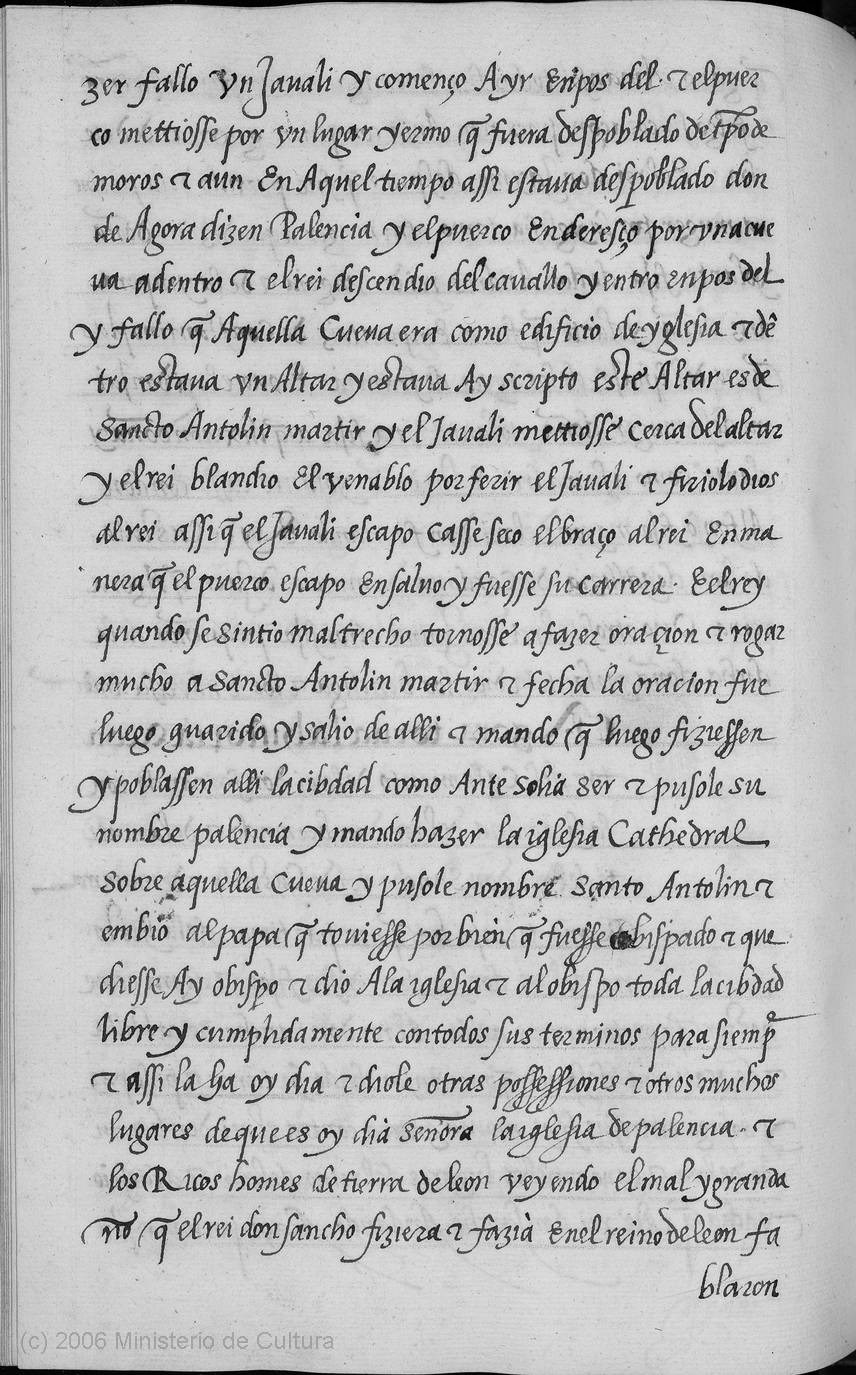 zer fallo vn Javali y començo Ayr Enpos del. & el puer
co mettiosse por vn lugar yermo q̃ fuera despoblado de tp̃o de
moros & aun En Aquel tiempo assi estava despoblado don
de Agora dizen Palencia y el puerco Enderesço por vna cue
va adentro & el rei descendio del cavallo y entro enpos del
y fallo q̃ Aquella Cueva era como edificio de yglesia & dẽ
tro estava vn Altar y estava Ay scripto este Altar es de
Sancto Antolin martir y el Javali mettiosse cerca del altar
y el rei blandio El venablo por ferir el Javali & firiolo dios
al rei assi q̃ el Javali escapo Casse seco el braço al rei En ma
nera q̃ el puerco escapo En salvo y fuesse su carrera. E el rey
quando se sintio maltrecho tornosse a fazer oraçion & rogar
mucho a Sancto Antolin martir & fecha la oracion fue
luego guarido y salio de alli & mando q̃ luego fiziessen
y poblassen alli la cibdad como Ante Solia ser & pusole su
nombre palencia y mando hazer la iglesia Cathedral
sobre aquella Cueva y pusole nombre Santo Antolin &
embio al papa q̃ toviesse por bien q̃ fuesse obispado & que
diesse Ay obispo & dio A la iglesia & al obispo toda la cibdad
libre y cumplidamente con todos sus terminos para siemp̃
& assi la ha oy dia & diole otras possessiones & otros muchos
lugares de que es oy dia señora la iglesia de palencia. &
los Ricos homes de tierra de leon veyendo el mal y gran da
ño q̃ el rei don sancho fiziera & fazia En el reino de leon fa
blaron
(c) 2006 Ministerio de Cultura